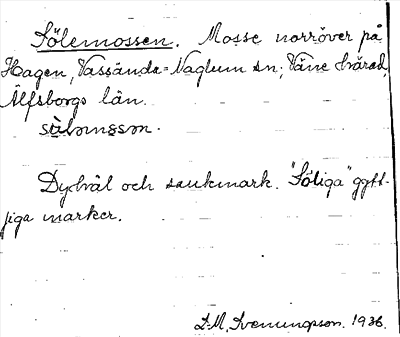 Sölemossen. Mosse norröver på
Hagen, Vassända=Naglum sn; Väne härad,
Älfsborgs län.
Dyhål och sankmark. "Söliga" gytt-
jiga marker.
L.M. Svenungsson. 1936.